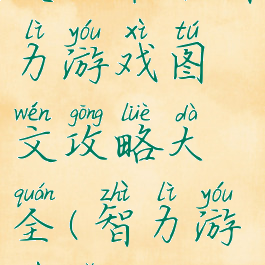 lì yóu xì tú
力游戏图
wén gōng lüè dà
文攻略大
quán zhì lì yóu
全(智力游